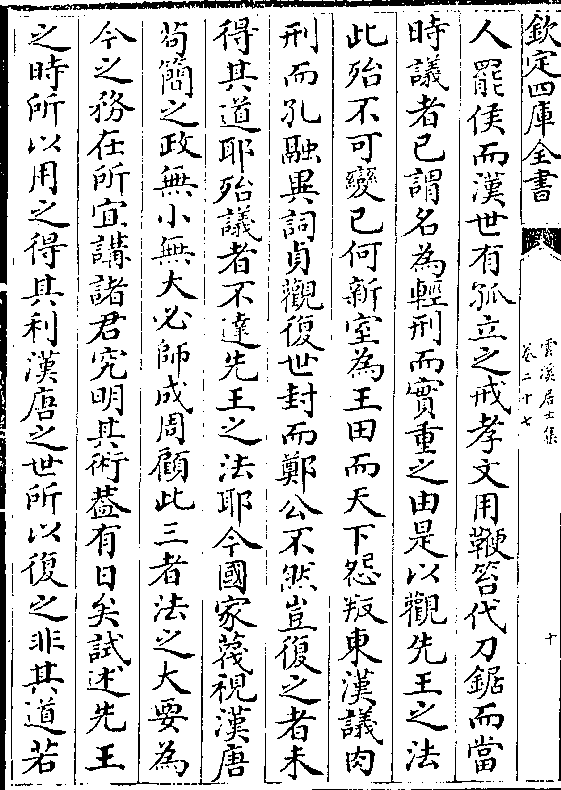 欽定四庫全書
雲溪居士集
卷二十七
十
人罷侯而漢世有孤立之戒孝文用鞭笞代刀鋸而當
時議者已謂名為輕刑而實重之由是以觀先王之法
此殆不可變已何新室為王田而天下怨叛東漢議肉
刑而孔融異詞貞觀復世封而鄭公不然豈復之者未
得其道耶殆議者不達先王之法耶今國家蔑視漢唐
茍簡之政無小無大必師成周顧此三者法之大要為
今之務在所宜講諸君究明其術葢有日矣試述先王
之時所以用之得其利漢唐之世所以復之非其道若